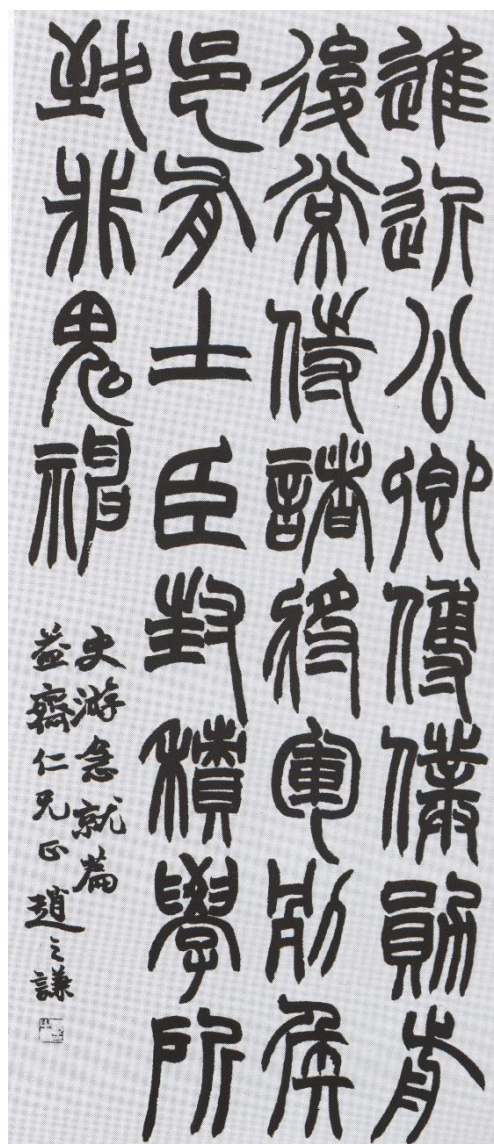 進近公卿傅僕勛前
後常侍諸將軍列侯
邑有土臣封積學所
致非鬼神
史游急就篇
益齋仁兄正 趙之謙